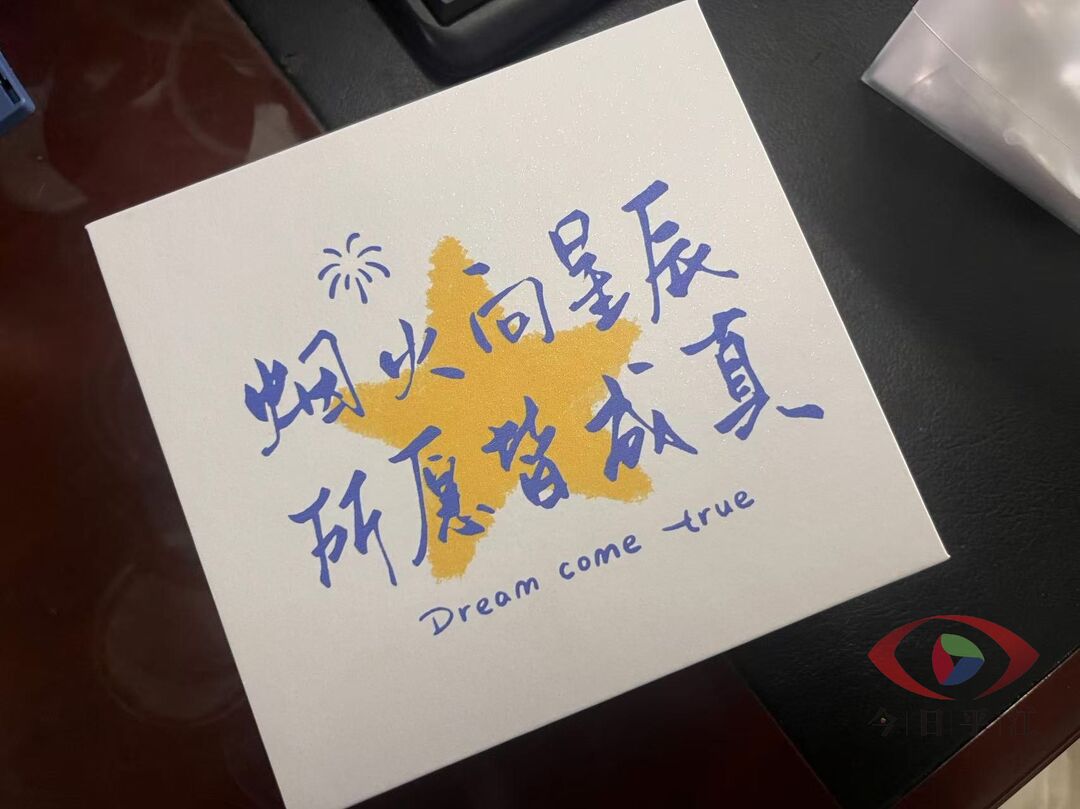 烟火向星辰
所愿皆成真
Dream come true
今日平江